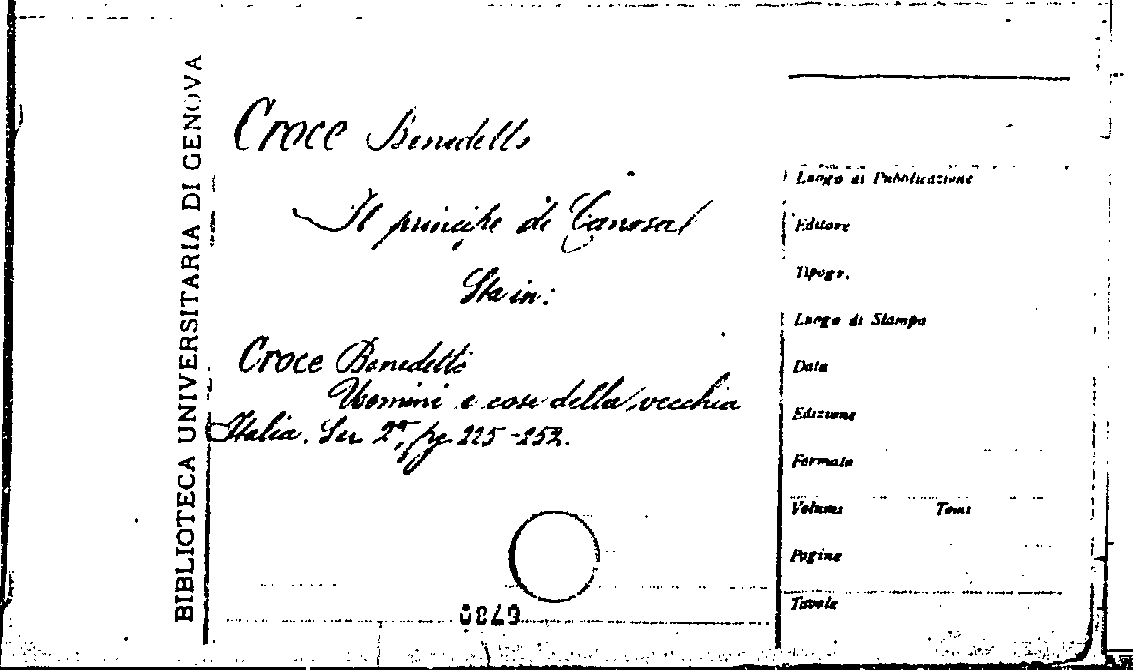 BIBLIOTECA UNIVERSITARIA DI GENOVA
Croce Benedetto
Il principe di Canosa
Sta in:
Croce Benedetto
Uomini e cose della vecchia
Italia. Ser. 2ª, pg. 225-252.
0849
Luogo di Pubblicazione
Editore
Tipogr.
Luogo di Stampa
Data
Edizione
Formato
Volumi Tomi
Pagine
Tavole